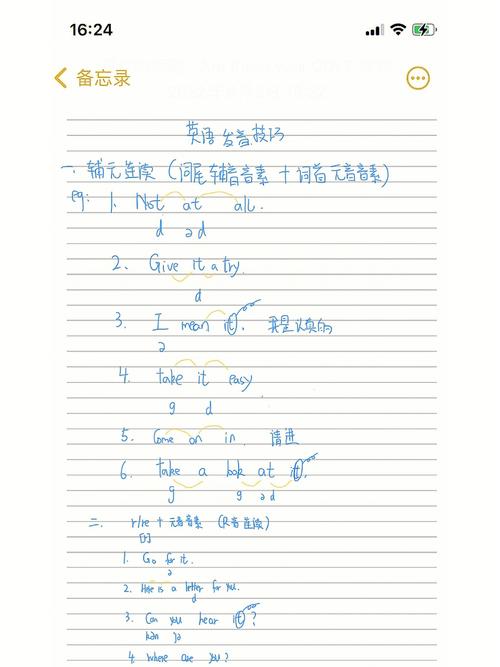 16:24
备忘录
英语发音技巧
一. 辅元连读 (词尾辅音音素 + 词首元音音素)
eg: 1. Not at all.
d əd
2. Give it a try.
d
3. I mean it. 我是认真的
ə
4. take it easy
g d
5. Come on in. 请进
6. take a book at it.
g g əd
二. r/re + 元音音素 (R音连读)
[r]
1. Go for it.
ə
2. Here is a letter for you.
d
3. Can you hear it?
kən jə
4. Where are you?